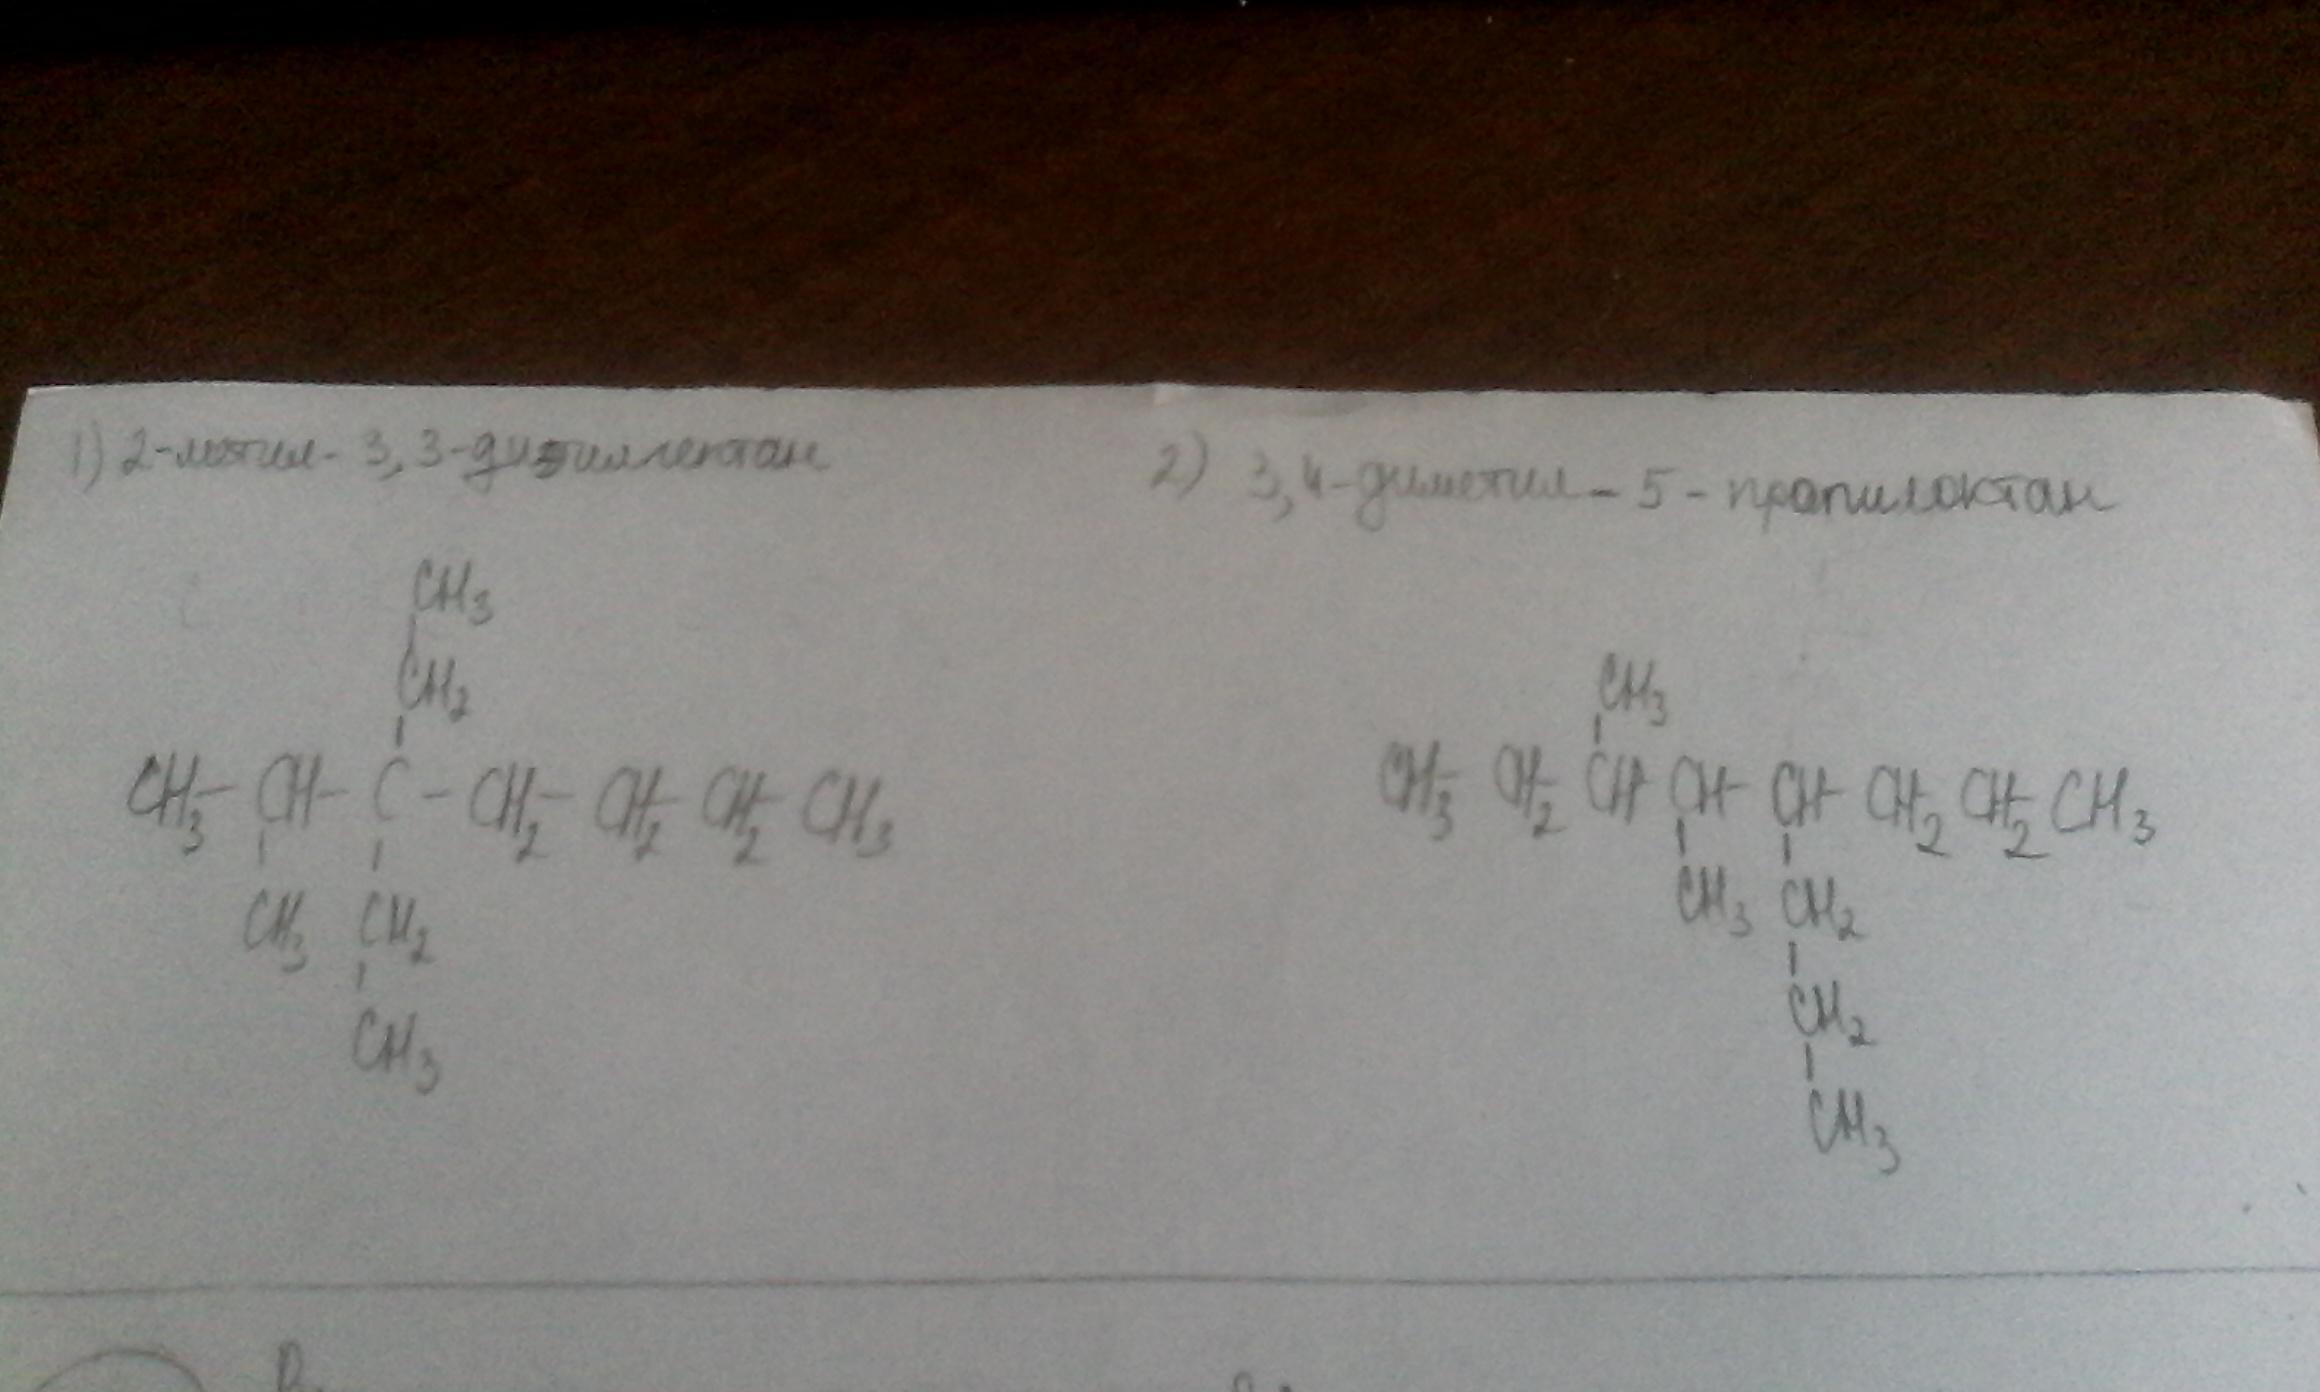 1) 2-метил-3,3-диэтилгептан
2) 3,4-диметил-5-пропилоктан
CH3
CH2
CH3-CH-C-CH2-CH2-CH2-CH3
CH3 CH2
CH3
CH3
CH3-CH2-CH-CH-CH-CH2-CH2-CH3
CH3 CH2
CH2
CH3